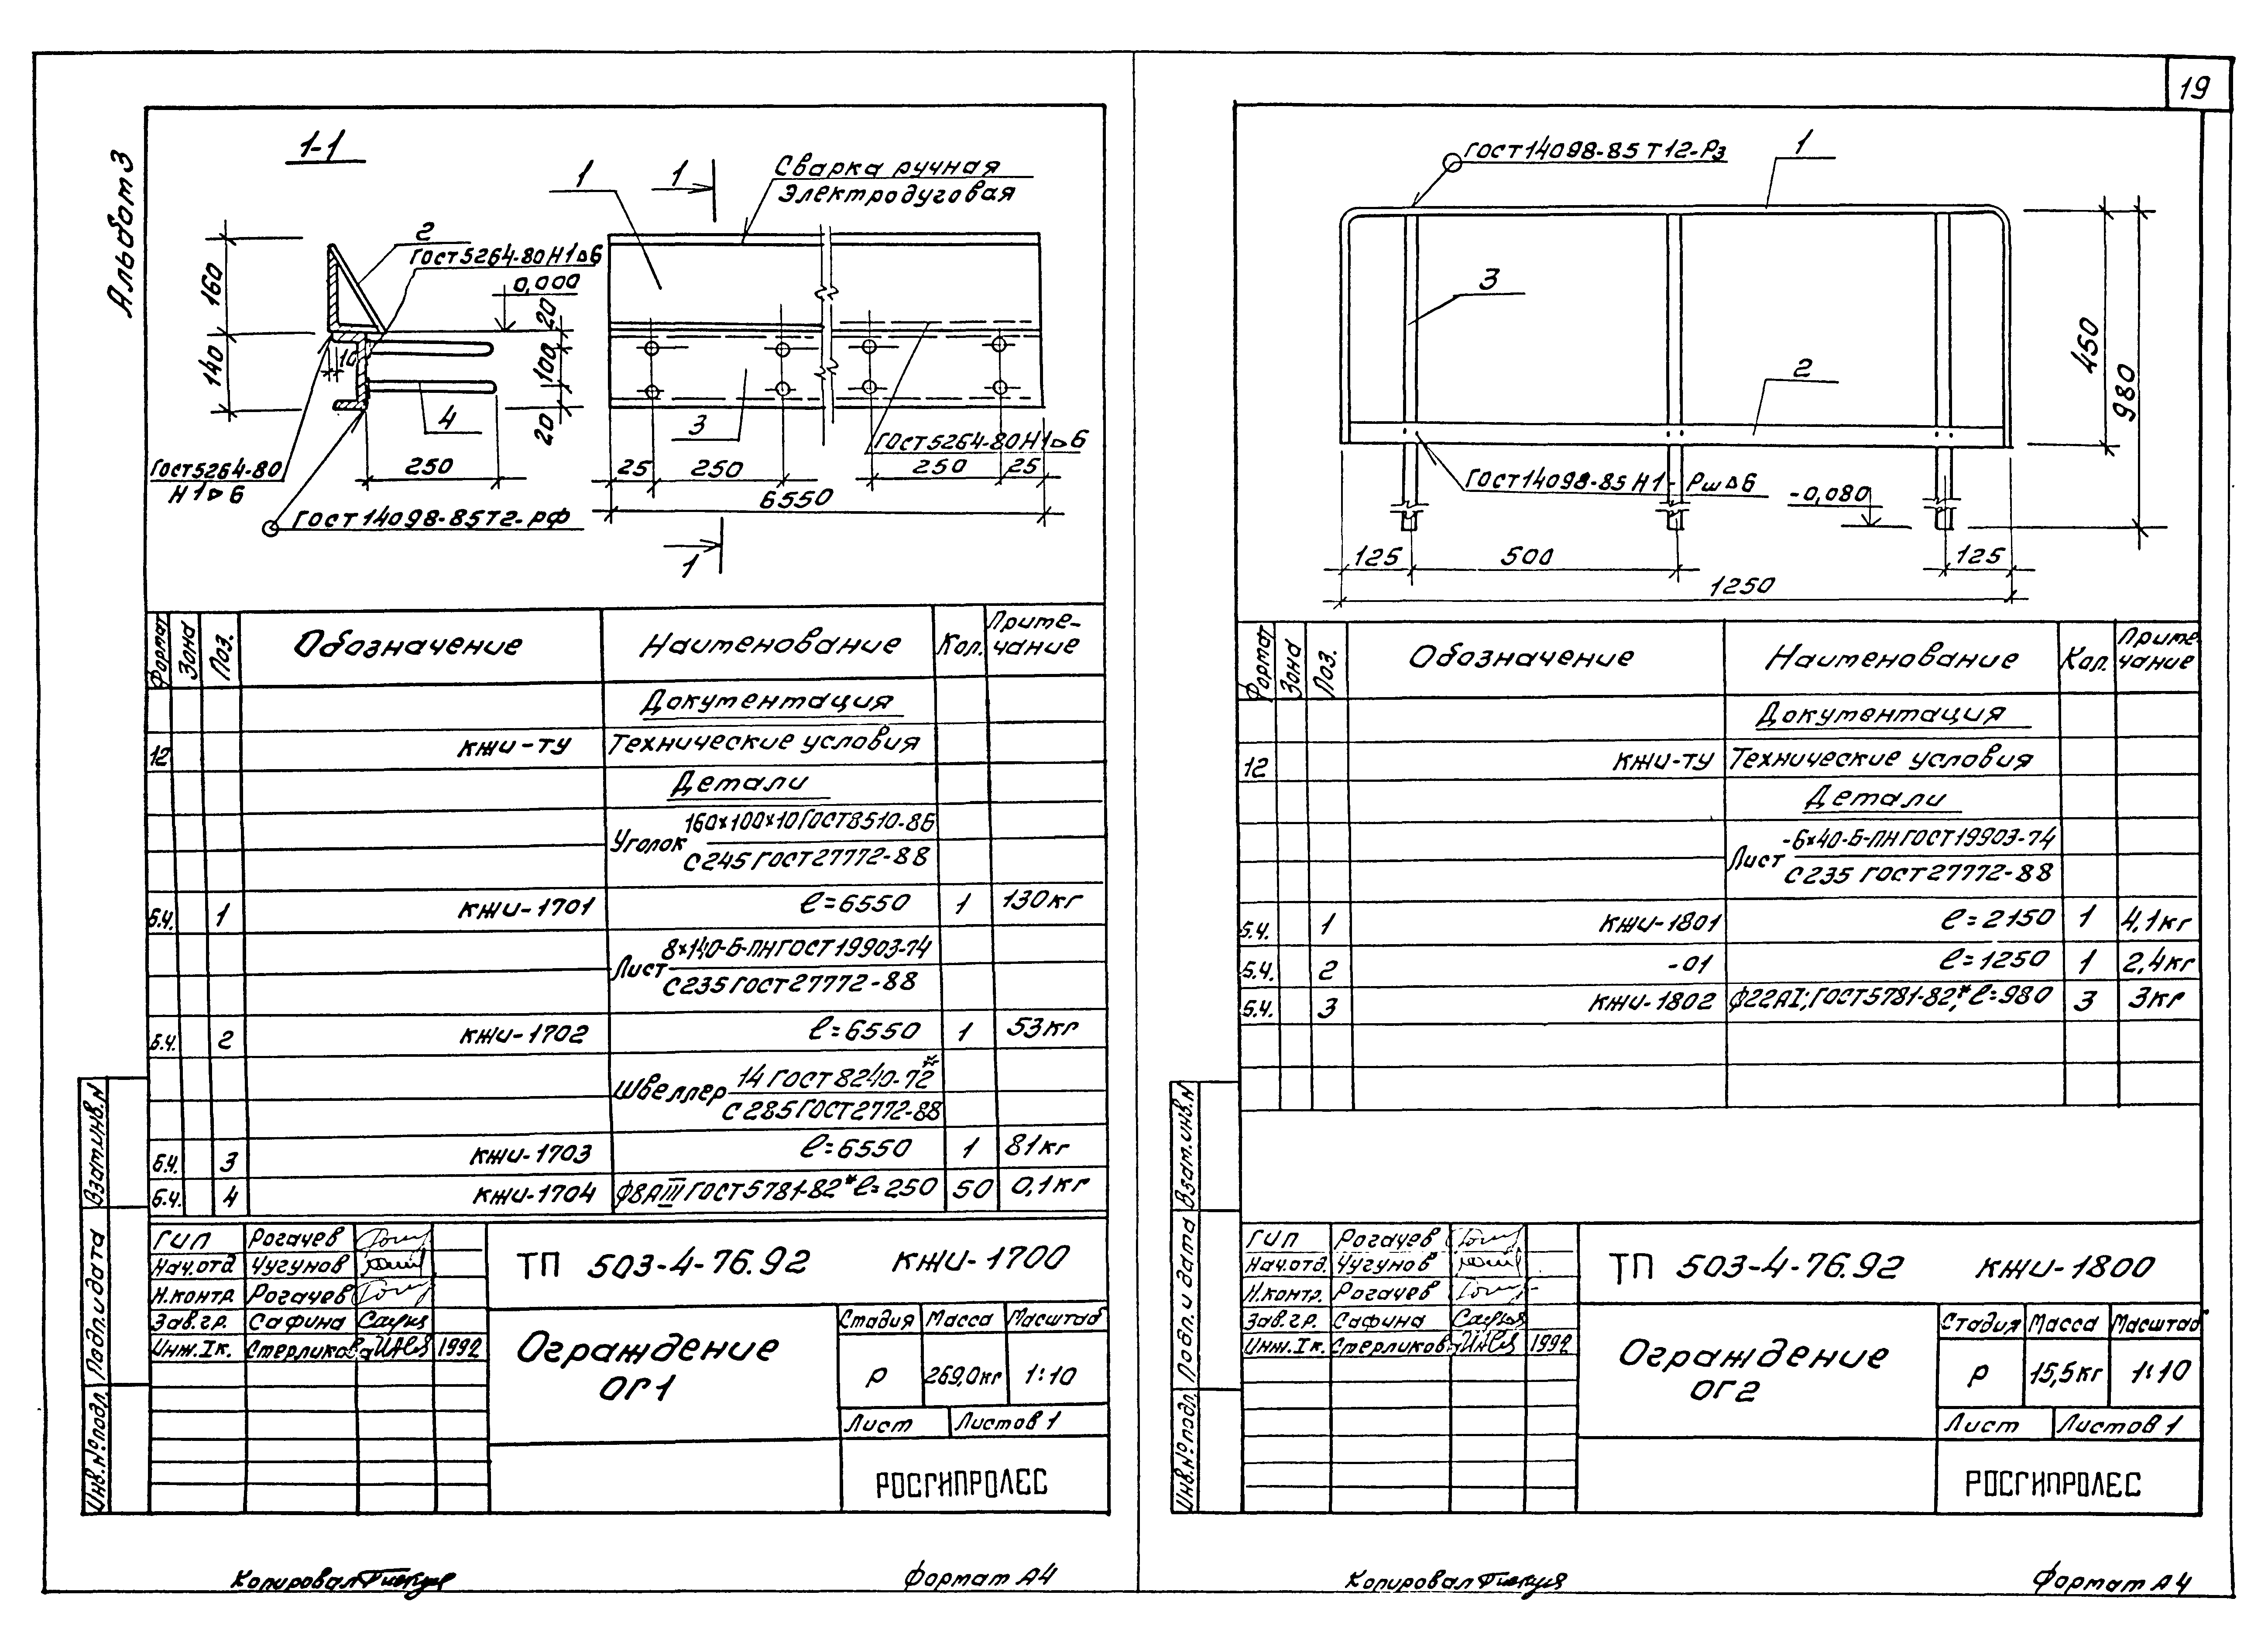 Альбом 3
1-1
1
1
Сварка ручная
электродуговая
2
ГОСТ 5264-80 Н1 ⊿6
0,000
160
140
10
20
100
20
4
3
ГОСТ 5264-80
Н1 ⊿6
250
ГОСТ 14098-85 Т2-Рф
ГОСТ 5264-80 Н1 ⊿6
25
250
250
25
6550
1
Формат
Зона
Поз.
Обозначение
Наименование
Кол.
Приме-
чание
Документация
12 КЖИ-ТУ Технические условия
Детали
Уголок 160×100×10 ГОСТ 8510-86
С245 ГОСТ 27772-88
Б.Ч. 1 КЖИ-1701 ℓ=6550 1 130кг
Лист 8×140-Б-ПН ГОСТ 19903-74
С235 ГОСТ 27772-88
Б.Ч. 2 КЖИ-1702 ℓ=6550 1 53кг
Швеллер 14 ГОСТ 8240-72*
С285 ГОСТ 2772-88
Б.Ч. 3 КЖИ-1703 ℓ=6550 1 81кг
Б.Ч. 4 КЖИ-1704 ф8АIII ГОСТ 5781-82* ℓ=250 50 0,1кг
Взам.инв.N
Подп.и дата
Инв.№подл.
ГИП Рогачев
Нач.отд Чугунов
Н.контр. Рогачев
Зав.гр. Сафина
Инж.Iк. Стерликова 1992
ТП 503-4-76.92 КЖИ-1700
Ограждение
ОГ1
Стадия Масса Масштаб
Р 269,0кг 1:10
Лист Листов 1
РОСГИПРОЛЕС
Копировал
Формат А4
19
ГОСТ 14098-85 Т12-Рз
1
3
2
450
980
ГОСТ 14098-85 Н1-Рш ⊿6
-0,080
125
500
125
1250
Формат
Зона
Поз.
Обозначение
Наименование
Кол.
Приме-
чание
Документация
12 КЖИ-ТУ Технические условия
Детали
Лист -6×40-Б-ПН ГОСТ 19903-74
С235 ГОСТ 27772-88
Б.Ч. 1 КЖИ-1801 ℓ=2150 1 4,1кг
Б.Ч. 2 -01 ℓ=1250 1 2,4кг
Б.Ч. 3 КЖИ-1802 ф22АI; ГОСТ 5781-82*, ℓ=980 3 3кг
Взам.инв.N
Подп.и дата
Инв.№подл.
ГИП Рогачев
Нач.отд. Чугунов
Н.контр. Рогачев
Зав.гр. Сафина
Инж.Iк. Стерликова 1992
ТП 503-4-76.92 КЖИ-1800
Ограждение
ОГ2
Стадия Масса Масштаб
Р 15,5кг 1:10
Лист Листов 1
РОСГИПРОЛЕС
Копировал
Формат А4